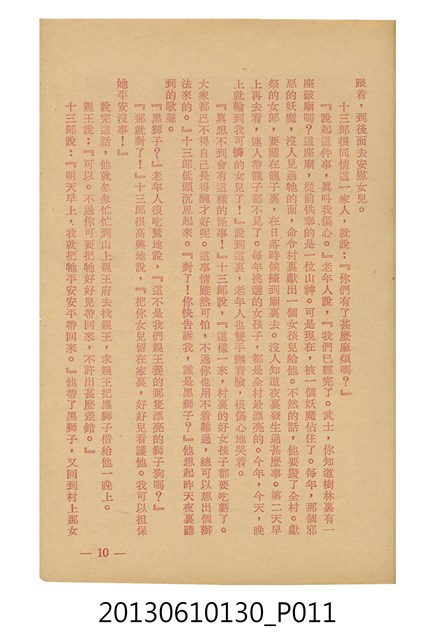 跟着，到後面去安慰女兒。
十三郎很同情這一家人，就說：『你們有了甚麼麻煩嗎？』
『說起這件事，眞叫我傷心。』老年人說，『我們已經完了。武士，你知道樹林裏有一
座破廟嗎？這座廟，從前供奉的是一位山神。可是現在，被一個妖魔佔住了。每年，那個邪
惡的妖魔，沒人見過牠的面，命令村裏獻出一個女孩兒給他。不然的話，他要毀了全村。獻
祭的女郎，要關在籠子裏，在日落時候擡到廟裏去。沒人知道夜裏發生過甚麼事。第二天早
上再去看，連人帶籠子都不見了。每年挑選的女孩子，都是全村最漂亮的。今年，今天，晚
上就輪到我可憐的女兒了！』說到這裏，老年人也雙手撫着臉，很傷心地哭着。
『眞想不到會有這樣的怪事！』十三郎說，『這樣一來，村裏的好女孩子都要吃虧了。
大家都巴不得自己長得醜才好呢。這事情雖然可怕，不過你也用不着難過，總可以想出個辦
法來的。』十三郎低頭沉思起來。『對了！你快告訴我，誰是黑獅子？』他想起昨天夜裏聽
到的歌聲。
『黑獅子？』老年人很吃驚地說，『這不是我們親王養的那隻漂亮的獅子狗嗎？』
『那就對了！』十三郎很高興地說，『把你女兒留在家裏，好好兒看護他。我可以擔保
她平安沒事！』
說完這話，他就匆匆忙忙到山上親王府去找親王，求親王把黑獅子借給他一晚上。
親王說：『可以。不過你可要把牠好好兒帶回來，不許出甚麼差錯。』
十三郎說：『明天早上，我就把牠平平安安帶回來。』他帶了黑獅子，又回到村上那女
— 10 —
20130610130_P011